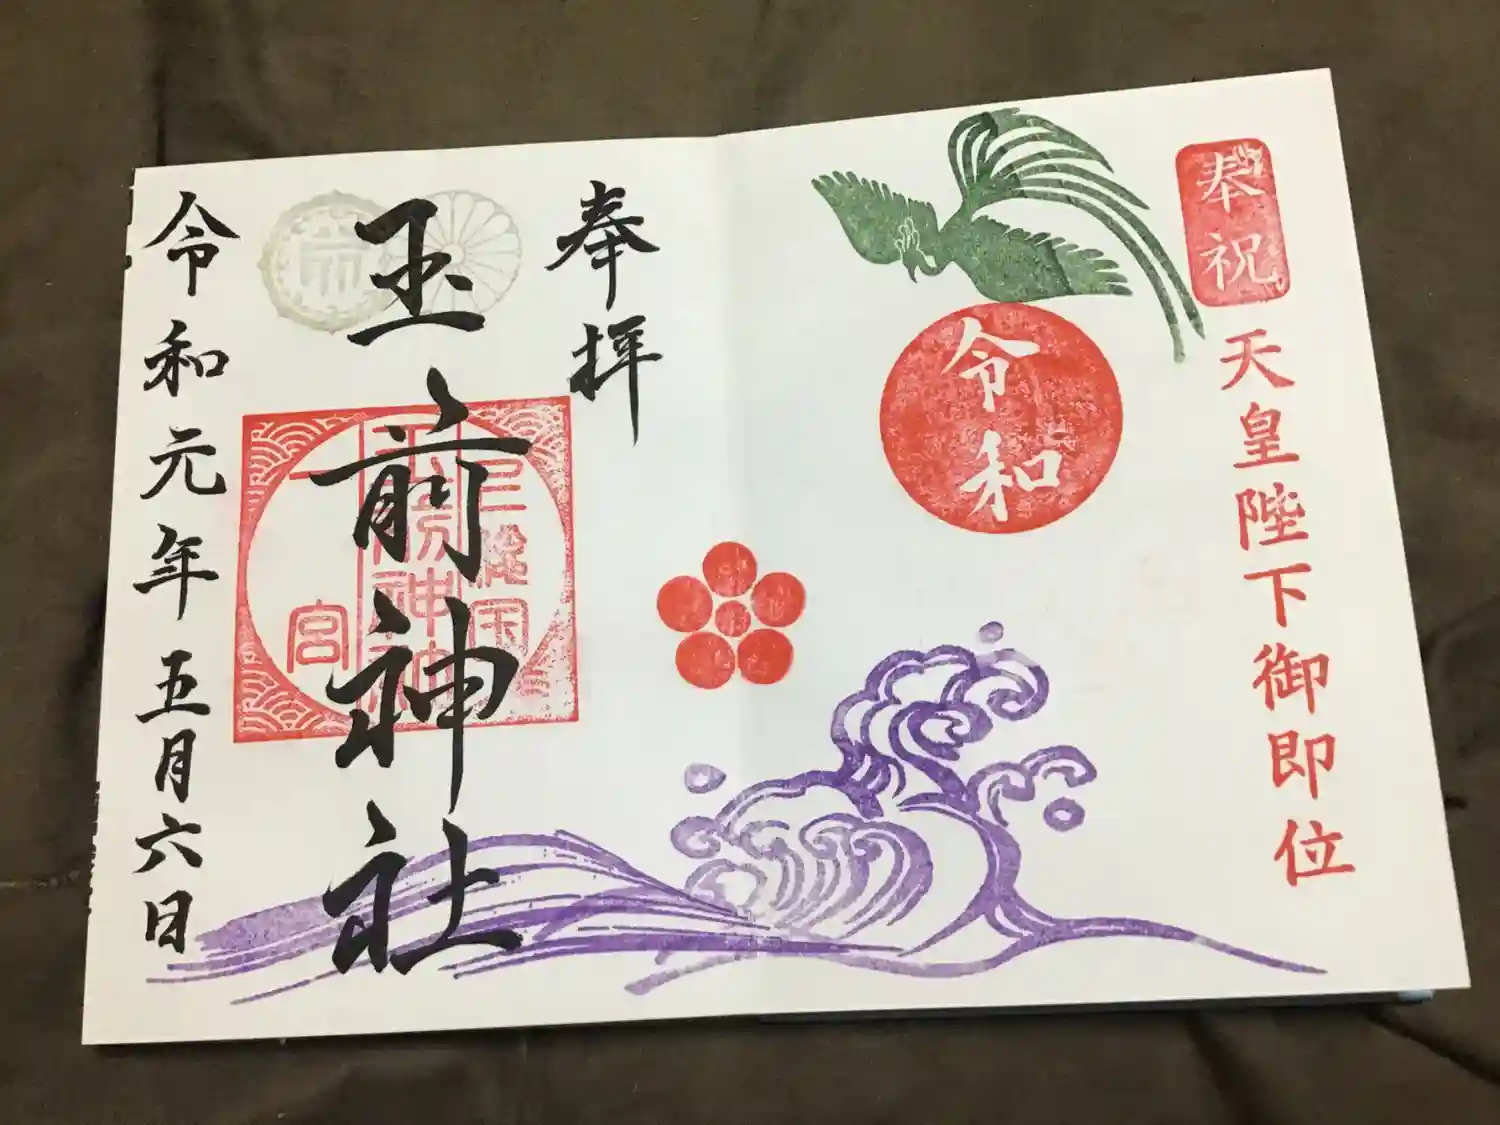 奉祝
天皇陛下御即位
令和
奉拝
玉前神社
上総国
玉前神社
一宮
令和元年五月六日